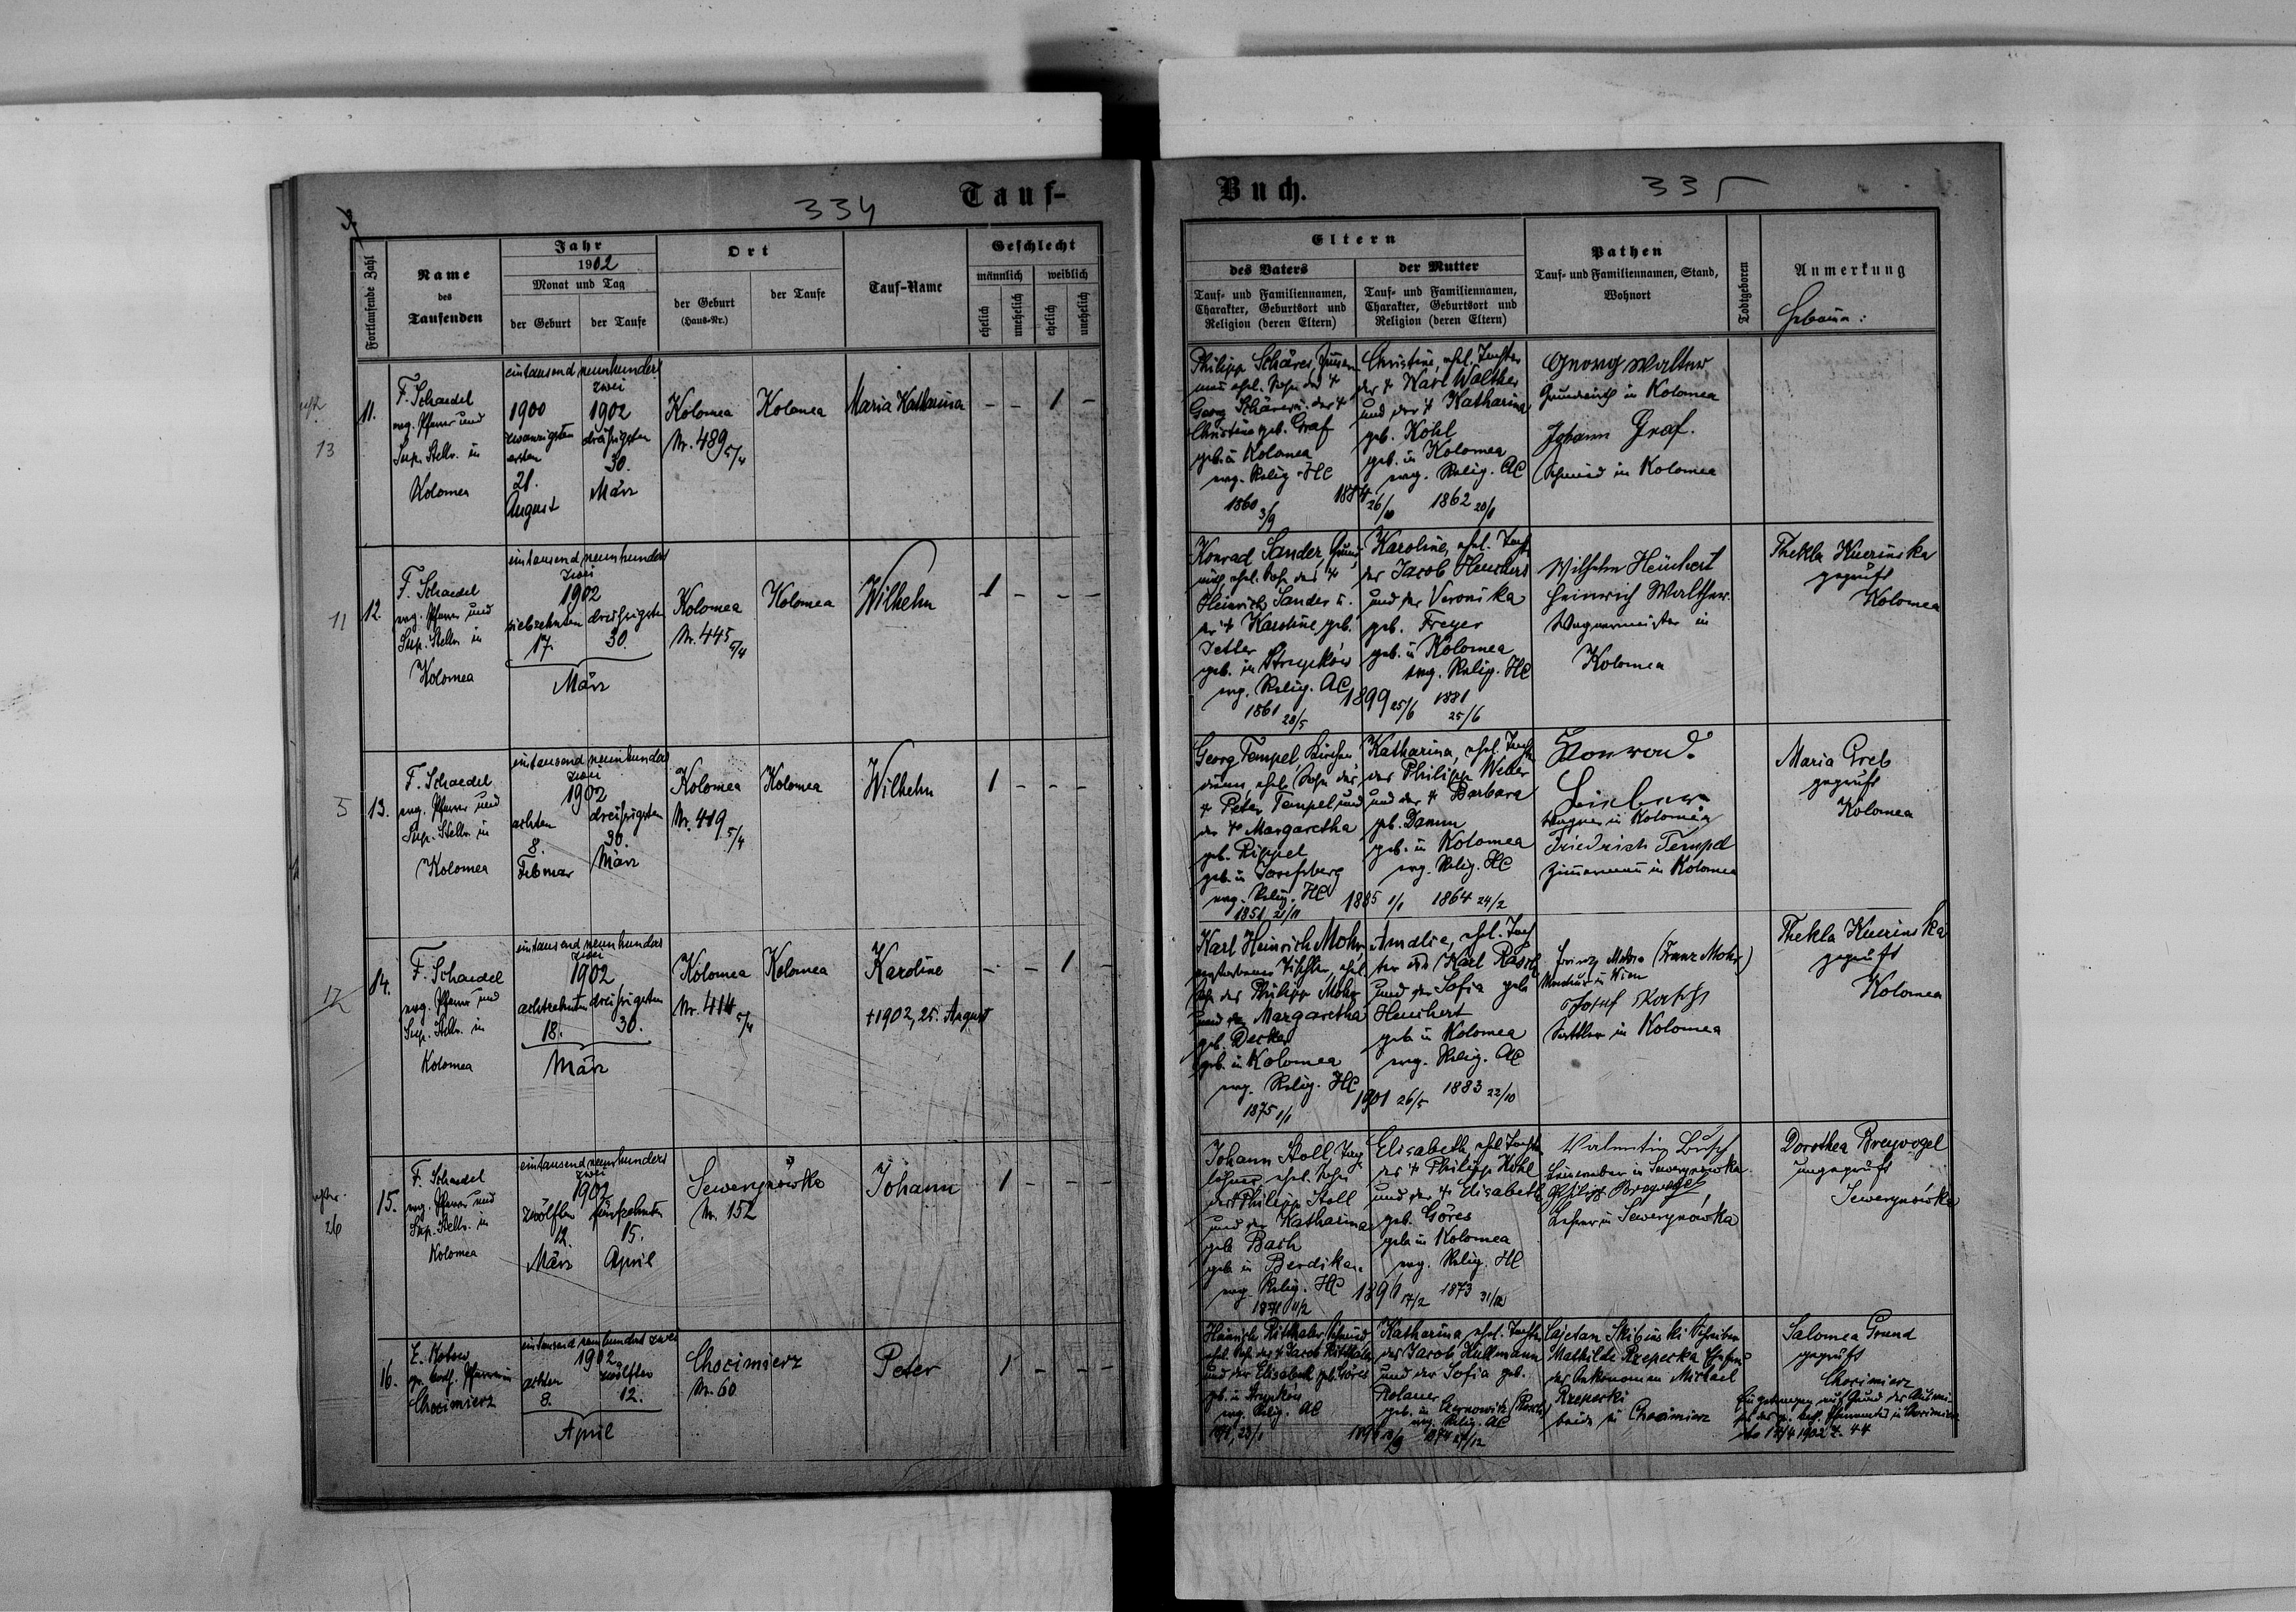 334
Tauf-
Fortlaufende Zahl
Name
des
Taufenden
Jahr
1902
Monat und Tag
der Geburt
der Taufe
Ort
der Geburt
(Haus-Nr.)
der Taufe
Tauf-Name
Geschlecht
männlich
weiblich
ehelich
unehelich
ehelich
unehelich
13
11.
F. Schaedel
evg. Pfarrer und
Sup. Stellv. in
Kolomea
eintausend neunhundert
zwei
1900
zwanzigsten
ersten
21.
August
1902
dreißigsten
30.
März
Kolomea
Nr. 489 5/4
Kolomea
Maria Katharina
- - 1 -
11
12.
F. Schaedel
evg. Pfarrer und
Sup. Stellv. in
Kolomea
eintausend neunhundert
zwei
1902
siebzehnten dreißigsten
17. 30.
März
Kolomea
Nr. 445 5/4
Kolomea
Wilhelm
1 - - -
5
13.
F. Schaedel
evg. Pfarrer und
Sup. Stellv. in
Kolomea
eintausend neunhundert
zwei
1902
achten
8.
Februar
dreißigsten
30.
März
Kolomea
Nr. 419 5/4
Kolomea
Wilhelm
1 - - -
12
14.
F. Schaedel
evg. Pfarrer und
Sup. Stellv. in
Kolomea
eintausend neunhundert
zwei
1902
achtzehnten dreißigsten
18. 30.
März
Kolomea
Nr. 414 5/4
Kolomea
Karoline
+ 1902, 25. August
- - 1 -
26
15.
F. Schaedel
evg. Pfarrer und
Sup. Stellv. in
Kolomea
eintausend neunhundert
zwei
1902
zwölften fünfzehnten
12. 15.
März April
Sewerynówka
Nr. 152
Johann
1 - - -
16.
gr. kath. Pfarrer in
Chocimierz
eintausend neunhundert zwei
1902
achten zwölften
8. 12.
April
Chocimierz
Nr. 60
Peter
1 - - -
Buch.
335
Eltern
des Vaters
Tauf- und Familiennamen,
Charakter, Geburtsort und
Religion (deren Eltern)
der Mutter
Tauf- und Familiennamen,
Charakter, Geburtsort und
Religion (deren Eltern)
Pathen
Tauf- und Familiennamen, Stand,
Wohnort
Todtgeboren
Anmerkung
Philipp Schärer, Zimmer-
mann ehel. Sohn des +
Georg Schärer u. der +
Christine geb. Graf
geb. in Kolomea
evg. Relig. HC
1860 3/9
Christine, ehel. Tochter
des + Karl Walther
und der + Katharina
geb. Kohl
geb. in Kolomea
evg. Relig. AC
1884 26/10 1862 20/1
Georg Walter
Grundwirth in Kolomea
Johann Graf.
Schmied in Kolomea
Konrad Sander, Grund-
wirth, ehel. Sohn des +
Heinrich Sander u.
der + Karoline geb.
Jetter
geb. in Augustdorf
evg. Relig. AC
1861 28/5
Karoline, ehel. Tocht.
des Jacob Heuchert
und der Veronika
geb. Freyer
geb. in Kolomea
evg. Relig. HC
1899 25/6 1881
25/6
Wilhelm Heuchert
Heinrich Walther.
Wagnermeister in
Kolomea
Thekla Kucrinska
geprüft
Kolomea
Georg Tempel, Kirchen-
diener, ehel. Sohn des
+ Peter Tempel und
der + Margaretha
geb. Rippel
geb. in Josefsberg
evg. Relig. HC
1851 21/11
Katharina, ehel. Tocht.
des Philipp Weber
und der + Barbara
geb. Damm
geb. in Kolomea
evg. Relig. HC
1885 1/1 1864 24/2
Konrad
Wagner in Kolomea
Friedrich Tempel
Zimmermann in Kolomea
Maria Greb
geprüft
Kolomea
Karl Heinrich Mohr,
verstorbener Tischler, ehel.
Sohn des Philipp Mohr
und der Margaretha
geb. Decker
geb. in Kolomea
evg. Relig. HC
1875 1/1
Amalie, ehel. Toch-
ter des Karl Rasch
und der Sofia geb.
Heuchert
geb. in Kolomea
evg. Relig. AC
1901 26/5 1883 22/10
Franz Mohr (Franz Mohr)
in Wien
Josef Rasch
Sattler in Kolomea
Thekla Kucrinska
geprüft
Kolomea
Johann Stoll, Tag-
löhner, ehel. Sohn
des Philipp Stoll
und der Katharina
geb. Bach
geb. in Berdikau
evg. Relig. HC
1871 11/2
Elisabeth, ehel. Tochter
des + Philipp Kohl
und der + Elisabeth
geb. Göres
geb. in Kolomea
evg. Relig. HC
1896 17/2 1873 31/12
Valentin Busch
in Sewerynowka
Philipp Breyvogel
Lehrer in Sewerynówka
Dorothea Breyvogel
ungeprüft
Sewerynówka
Heinrich Rotthaler, Schmied
ehel. Sohn des + Jacob Rotthaler
und der Elisabeth geb. Göres
evg. Relig. AC
Katharina, ehel. Tochter
des Jacob Kullmann
und der Sofia geb.
Rolauer
evg. Relig. AC
Cajetan Skibinski Schreiber
Mathilde Rzepecka Ehefrau
des Oekonomen Michael
Rzepecki
beide in Chocimierz
Salomea Grund
geprüft
Chocimierz